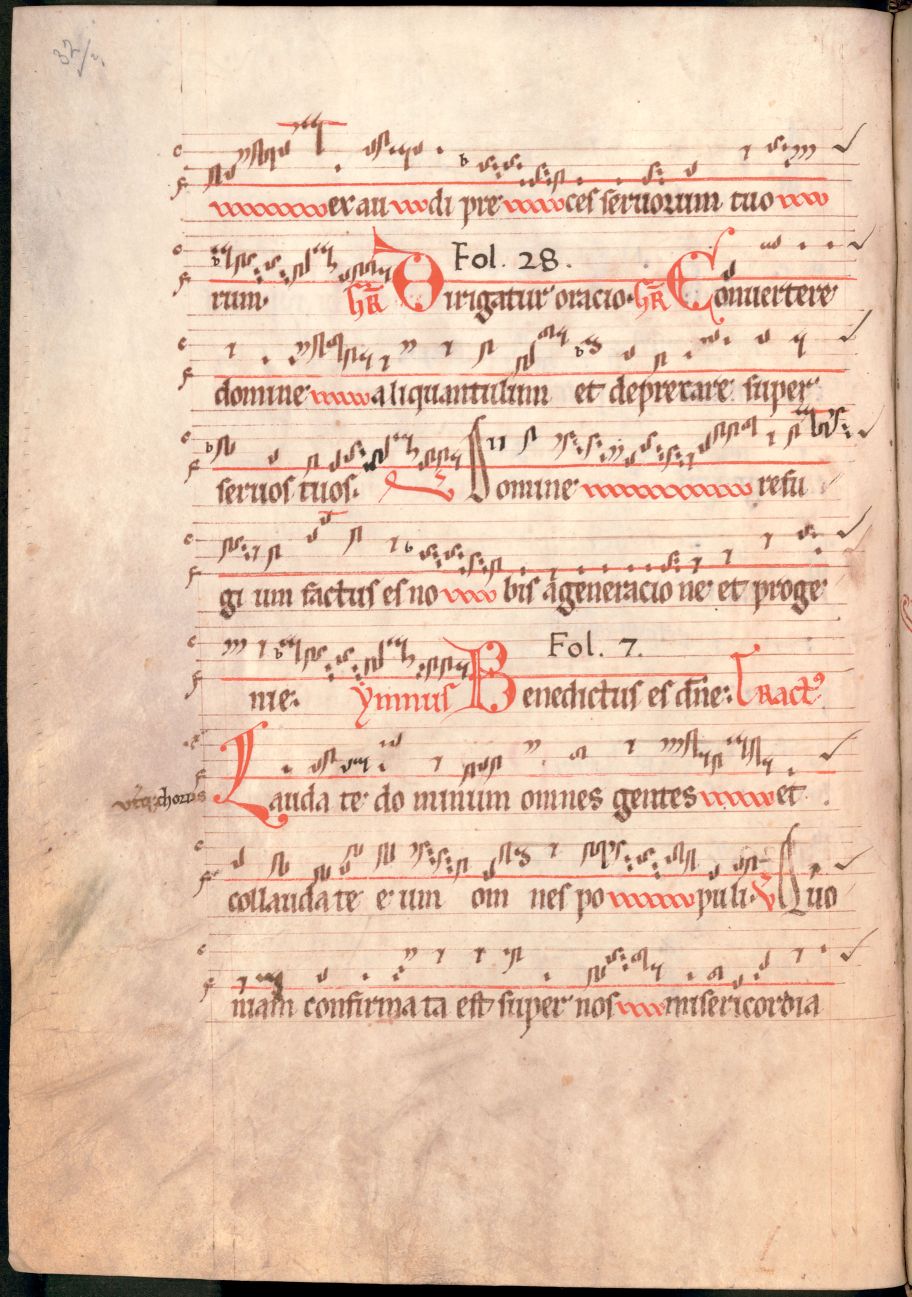 exau di pre ces seruorum tuo
rum. Fol. 28. GR Dirigatur oracio. GR Conuertere
domine aliquantulum et deprecare super
seruos tuos. V Domine refu
gi um factus es no bis a generacio ne et proge
nie. Fol. 7. Ymnus Benedictus es dne. Tract9
Lauda te do minum omnes gentes et
chorus
collauda te e um om nes po puli. V Quo
niam confirma ta est super nos misericordia